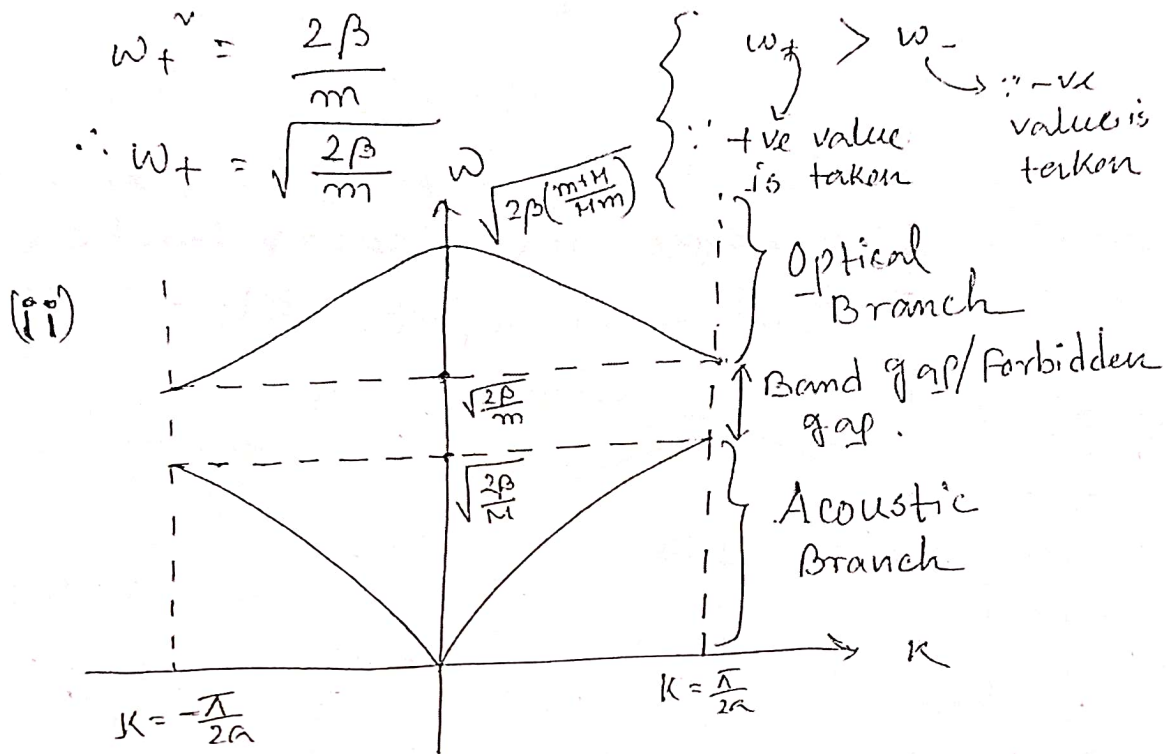 ω₊² = 2β/m
∴ ω₊ = √(2β/m)
ω₊ > ω₋
∵ +ve value is taken
∵ -ve value is taken
(ii)
ω
√(2β((m+M)/Mm))
Optical Branch
√(2β/m)
Band gap/Forbidden gap.
√(2β/M)
Acoustic Branch
K
K = -π/2a
K = π/2a